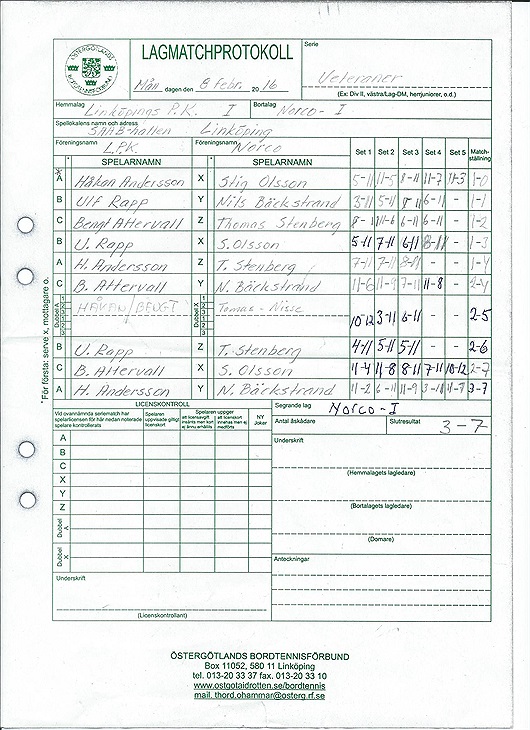 ÖSTERGÖTLANDS BORDTENNISFÖRBUND
LAGMATCHPROTOKOLL
Serie
Veteraner
Mån dagen den 8 Febr. 20 16
(Ex: Div II, västra/Lag-DM, herrjuniorer, o.d.)
Hemmalag Linköpings P.K. I Bortalag Norco - I
Spellokalens namn och adress
SAAB-hallen Linköping
Föreningsnamn L.P.K. Föreningsnamn Norco
* SPELARNAMN * SPELARNAMN Set 1 Set 2 Set 3 Set 4 Set 5 Match-ställning
A Håkan Andersson X Stig Olsson 5-11 11-5 8-11 11-7 11-3 1-0
B Ulf Rapp Y Nils Bäckstrand 3-11 5-11 11-6 - 1-1
C Bengt Attervall Z Thomas Stenberg 8-11 11-6 6-11 6-11 - 1-2
B U. Rapp X S. Olsson 5-11 7-11 6-11 - 1-3
A H. Andersson Z T. Stenberg 7-11 7-11 8-11 - - 1-4
C B. Attervall Y N. Bäckstrand 11-6 11-9 7-11 11-8 - 2-4
Dubbel A 1 2 3 1 2 3 HÅKAN/BENGT Dubbel X 1 2 3 1 2 3 Tomas - Nisse 10-12 3-11 6-11 - - 2-5
B U. Rapp Z T. Stenberg 4-11 5-11 5-11 - - 2-6
C B. Attervall X S. Olsson 11-4 11-8 8-11 7-11 10-12 2-7
A H. Andersson Y N. Bäckstrand 11-2 6-11 11-9 3-11 3-7
*För första: serve x, mottagare o.
LICENSKONTROLL
Segrande lag Norco - I
Vid ovannämnda seriematch har spelarlicensen för här nedan noterade spelare kontrollerats
Spelaren uppvisade giltigt licenskort
Spelaren uppger
att licensavgift insänts men kort ej ännu erhållits
att licenskort innehas men ej medförts
NY Joker
Antal åskådare
Slutresultat 3 - 7
A
B
C
X
Y
Z
Dubbel A
Dubbel X
Underskrift
(Hemmalagets lagledare)
(Bortalagets lagledare)
(Domare)
Anteckningar
Underskrift
(Licenskontrollant)
ÖSTERGÖTLANDS BORDTENNISFÖRBUND
Box 11052, 580 11 Linköping
tel. 013-20 33 37 fax. 013-20 33 10
www.ostgotaidrotten.se/bordtennis
mail. thord.ohammar@osterg.rf.se